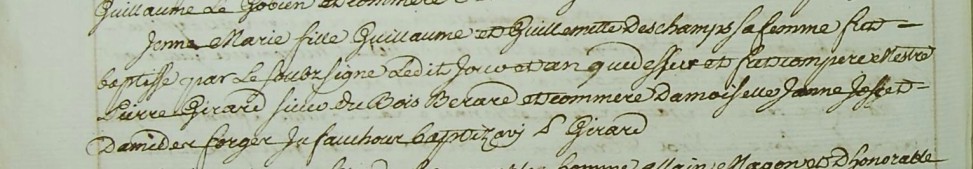 Guillaume Le Gooien et commere
Janne Marie fille Guillaume et Guillemette Deschamps sa femme fut
baptisse par Le soubz signe Ledit Jour et an que dessus et fut compere Mestre
Pierre Girard sieur du Bois Berard et commere Damoiselle Janne Josset
Dame der forger Ju fauhour baptizavj P Girard
homme allain Magon et Dhonoratte